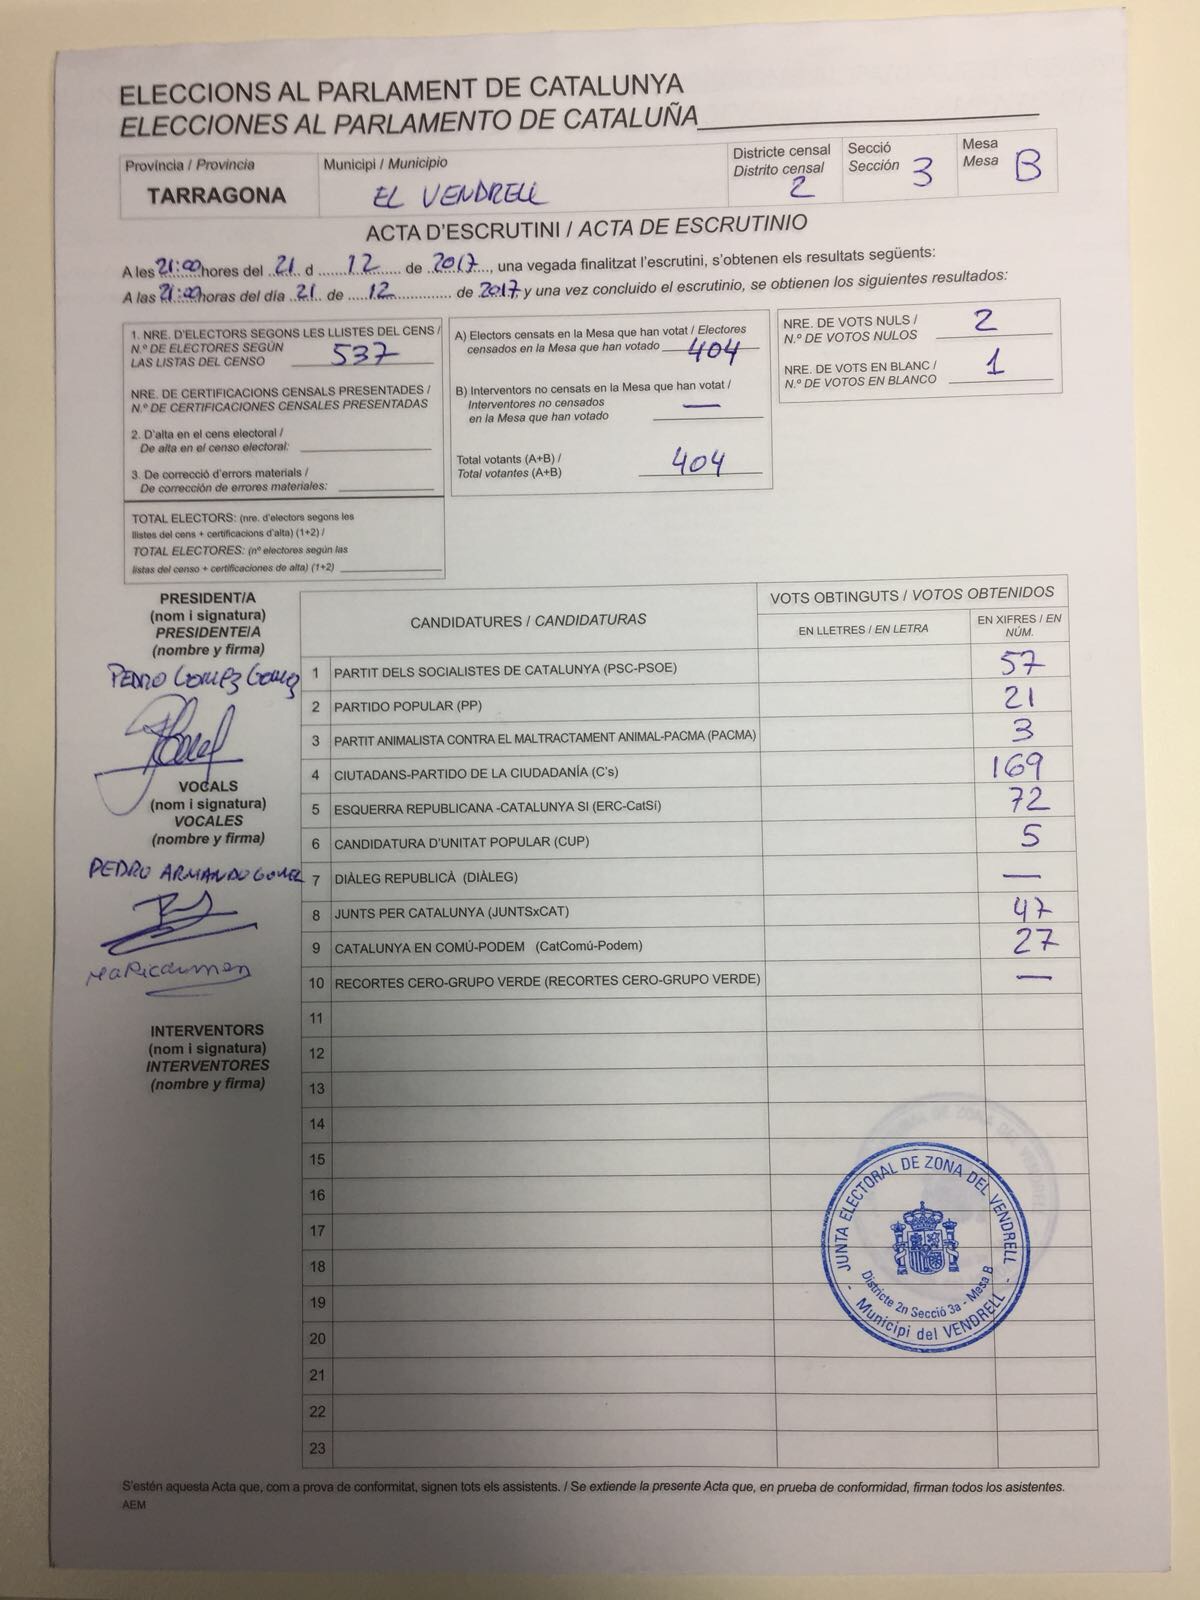 ELECCIONS AL PARLAMENT DE CATALUNYA
ELECCIONES AL PARLAMENTO DE CATALUÑA
Província / Provincia
TARRAGONA
Municipi / Municipio
EL VENDRELL
Districte censal
Distrito censal
2
Secció
Sección 3
Mesa
Mesa B
ACTA D'ESCRUTINI / ACTA DE ESCRUTINIO
A les 21:00 hores del 21 d 12 de 2017, una vegada finalitzat l'escrutini, s'obtenen els resultats següents:
A las 21:00 horas del día 21 de 12 de 2017 y una vez concluido el escrutinio, se obtienen los siguientes resultados:
1. NRE. D'ELECTORS SEGONS LES LLISTES DEL CENS /
N.º DE ELECTORES SEGÚN
LAS LISTAS DEL CENSO 537
NRE. DE CERTIFICACIONS CENSALS PRESENTADES /
N.º DE CERTIFICACIONES CENSALES PRESENTADAS
2. D'alta en el cens electoral /
De alta en el censo electoral:
3. De correcció d'errors materials /
De corrección de errores materiales:
TOTAL ELECTORS: (nre. d'electors segons les
llistes del cens + certificacions d'alta) (1+2) /
TOTAL ELECTORES: (nº electores según las
listas del censo + certificaciones de alta) (1+2)
A) Electors censats en la Mesa que han votat / Electores
censados en la Mesa que han votado 404
B) Interventors no censats en la Mesa que han votat /
Interventores no censados —
en la Mesa que han votado
Total votants (A+B) /
Total votantes (A+B) 404
NRE. DE VOTS NULS /
N.º DE VOTOS NULOS 2
NRE. DE VOTS EN BLANC /
N.º DE VOTOS EN BLANCO 1
PRESIDENT/A
(nom i signatura)
PRESIDENTE/A
(nombre y firma)
PEDRO GOMEZ GOMEZ
VOCALS
(nom i signatura)
VOCALES
(nombre y firma)
PEDRO ARMANDO GOMEZ
Maricarmen
INTERVENTORS
(nom i signatura)
INTERVENTORES
(nombre y firma)
CANDIDATURES / CANDIDATURAS
VOTS OBTINGUTS / VOTOS OBTENIDOS
EN LLETRES / EN LETRA
EN XIFRES / EN
NÚM.
1 PARTIT DELS SOCIALISTES DE CATALUNYA (PSC-PSOE) 57
2 PARTIDO POPULAR (PP) 21
3 PARTIT ANIMALISTA CONTRA EL MALTRACTAMENT ANIMAL-PACMA (PACMA) 3
4 CIUTADANS-PARTIDO DE LA CIUDADANÍA (C's) 169
5 ESQUERRA REPUBLICANA -CATALUNYA SI (ERC-CatSí) 72
6 CANDIDATURA D'UNITAT POPULAR (CUP) 5
7 DIÀLEG REPUBLICÀ (DIÀLEG) —
8 JUNTS PER CATALUNYA (JUNTSxCAT) 47
9 CATALUNYA EN COMÚ-PODEM (CatComú-Podem) 27
10 RECORTES CERO-GRUPO VERDE (RECORTES CERO-GRUPO VERDE) —
11
12
13
14
15
16
17
18
19
20
21
22
23
JUNTA ELECTORAL DE ZONA DEL VENDRELL
Districte 2n Secció 3a - Mesa B
- Municipi del VENDRELL -
S'estén aquesta Acta que, com a prova de conformitat, signen tots els assistents. / Se extiende la presente Acta que, en prueba de conformidad, firman todos los asistentes.
AEM